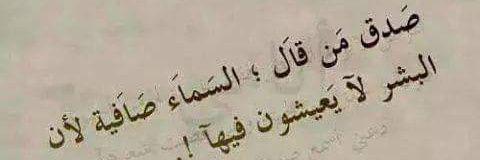 صَدق مَن قاَل ؛ السَماءَ صَافية لأن
البشر لآ يَعيشون فيهآ !.